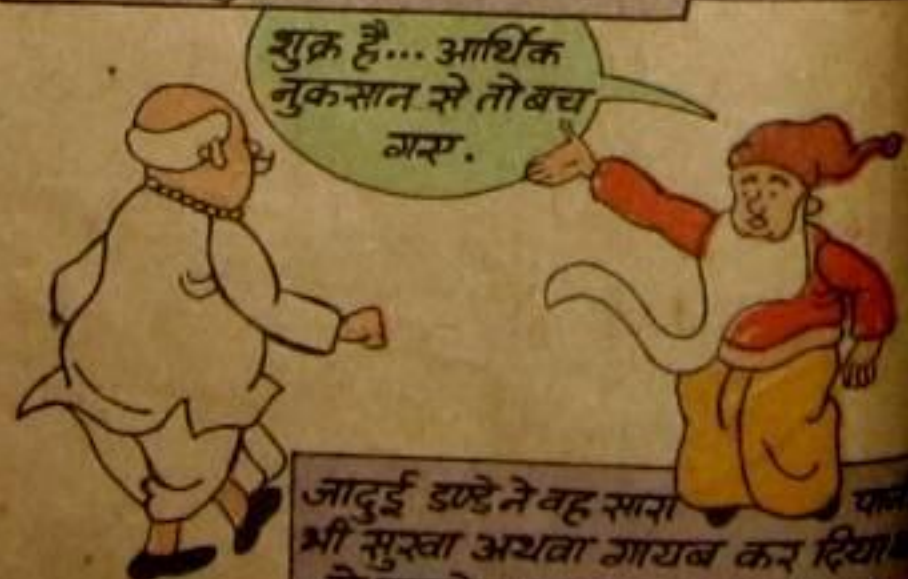 शुक्र है... आर्थिक
नुकसान से तो बच
गए.
जादुई डण्डे ने वह सारा
भी सुखा अथवा गायब कर दिया